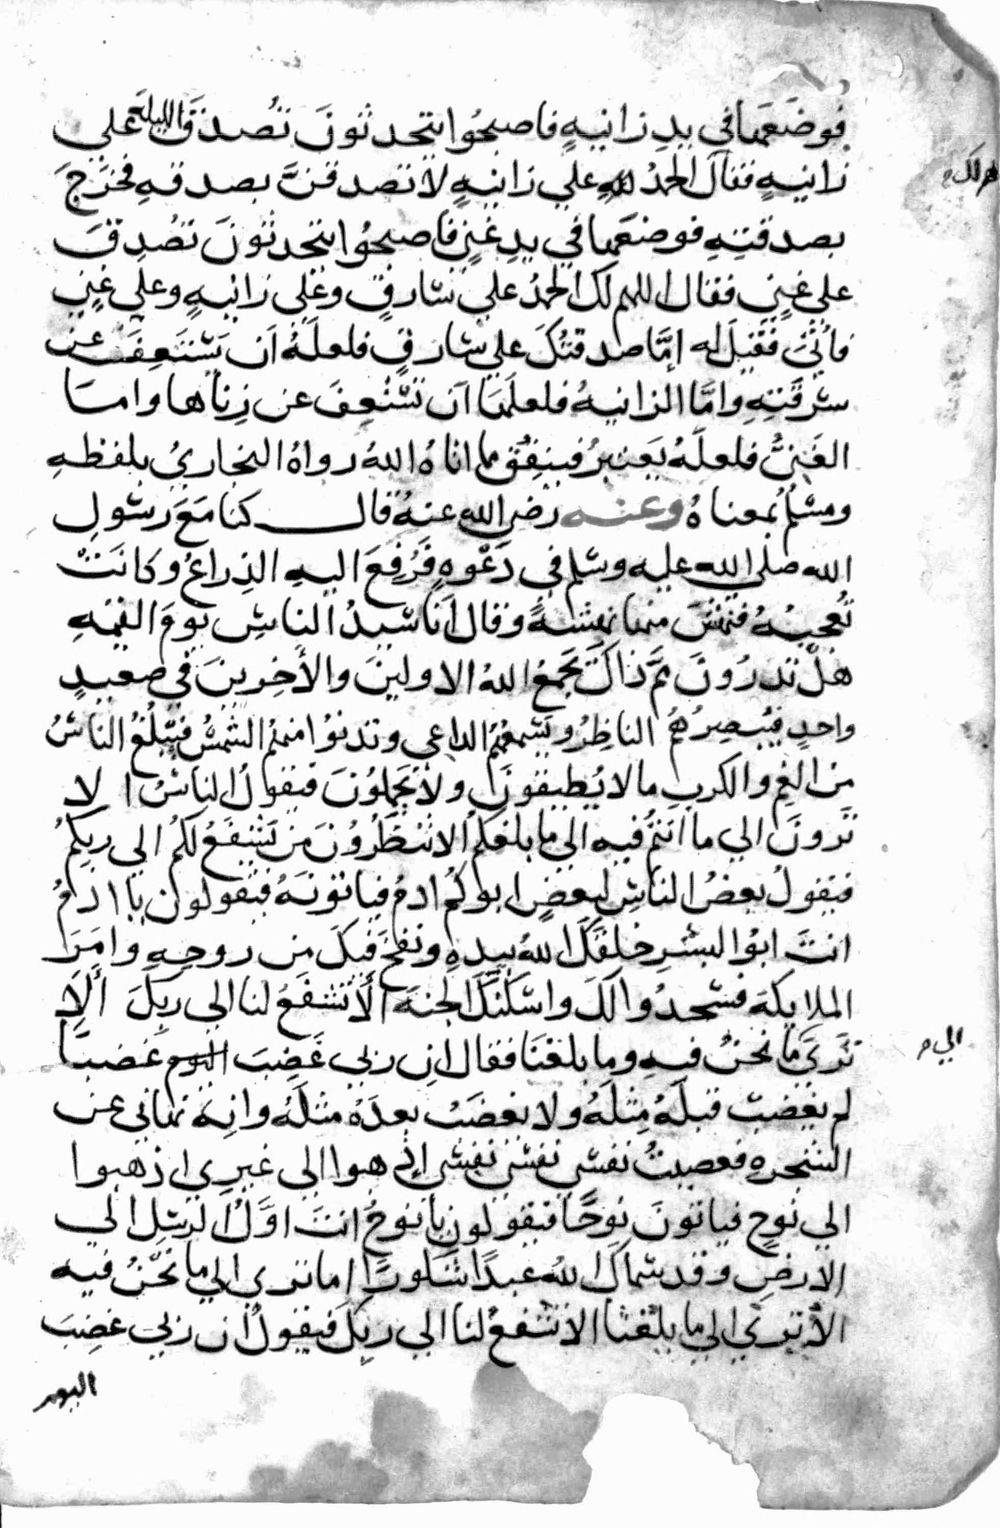 فوضَعَها في يدِ زانيةٍ فاصبحُوا يتحدثونَ تُصدقَ الليلةَ على
زانيةٍ فقالَ الحمدُ للهِ علي زانيةٍ لاتصدقنَّ بصدقةٍ فخرَجَ
بصدقتِهِ فوضعَها في يدِ غنيٍ فاصبحُوا يتحدثونَ تُصُدِقَ
على غنيٍ فقال اللهم لك الحمدُ على سارقٍ وعلى زانيةٍ وعلي غنيٍ
فاُتيَ فقيلَ له إمَّا صدقتُكَ على سارقٍ فلعلَّهُ ان يَسْتَعِفَ عن
سرقتِهِ وامَّا الزانيةُ فلعلَها ان تَسْتَعِفَ عن زِناها واما
الغَنيُّ فلعلَهُ يَعتبرُ فينفِقُ مما اتاهُ اللهُ رواهُ البخاريُ بلفظهِ
ومسْلمٌ بمعناهُ وعنه رضي الله عنهُ قال كنا مَعَ رسُولِ
الله صلى الله عليه وسلم في دَعْوةٍ فَرُفِعَ اليهِ الذِراعُ وكانَتْ
تُعجبُهُ فنهسَ منها نهسَةً وقال اَنا سَيدُ الناسِ يومَ القيمةِ
هلْ تدرُونَ ممَّ ذاكَ يَجمعُ اللهُ الاولينَ والأخرِينَ في صعيدٍ
واحدٍ فيُبصِرُهُمُ الناظِرُ ويُسْمِعُهُمُ الداعي وتدنوُا منهمُ الشمسُ فيَبْلُغُ الناسُ
من الغمِ والكربِ مالا يُطيقونَ ولا يَحتملونَ فيقولُ الناسُ الا
تَرونَ الي ما انتمُ فيه الي ما بلغكمُ الا تنظُرُونَ مَن يَشْفَعُ لكمُ الي ربكمُ
فيقولُ بعضُ الناسِ لبعضٍ ابوكمُ ادمُ فياتونَهُ فيقولون يا ادمُ
انتَ ابوُا البشرِ خلقكَ اللهُ بيدهِ ونفخَ فيكَ من روحِهِ وامَرَ
الملايكةَ فسَجدُوا لكَ واسْكنكَ الجنةَ ألا تشفعُ لنا الي ربِكَ ألا
تَرى ما نحنُ فيهِ وما بلغنَا فقال ان ربي غَضِبَ اليوم غضبًا
لم يغضبْ قبلَهُ مثلَهُ ولا يغضَبُ بعدَهُ مثلَهُ وانهُ نهاني عن
الشجرةِ فعصيتُ نفسْي نفسْي نفسْي إذهبوا الى غيرِي اذهبوا
الي نُوحٍ فياتونَ نوحًا فيقولون يا نوحُ انتَ اوَّلُ الرسُلِ الي
الارضِ وقد سَماكَ اللهُ عبدًا شكورًا اما ترى الي ما نحْنُ فيه
الا تري الي ما بلغْنَا الا تشفعُ لنا الي ربِكَ فيقولُ ان ربي غضِبَ
اليوم
الي م